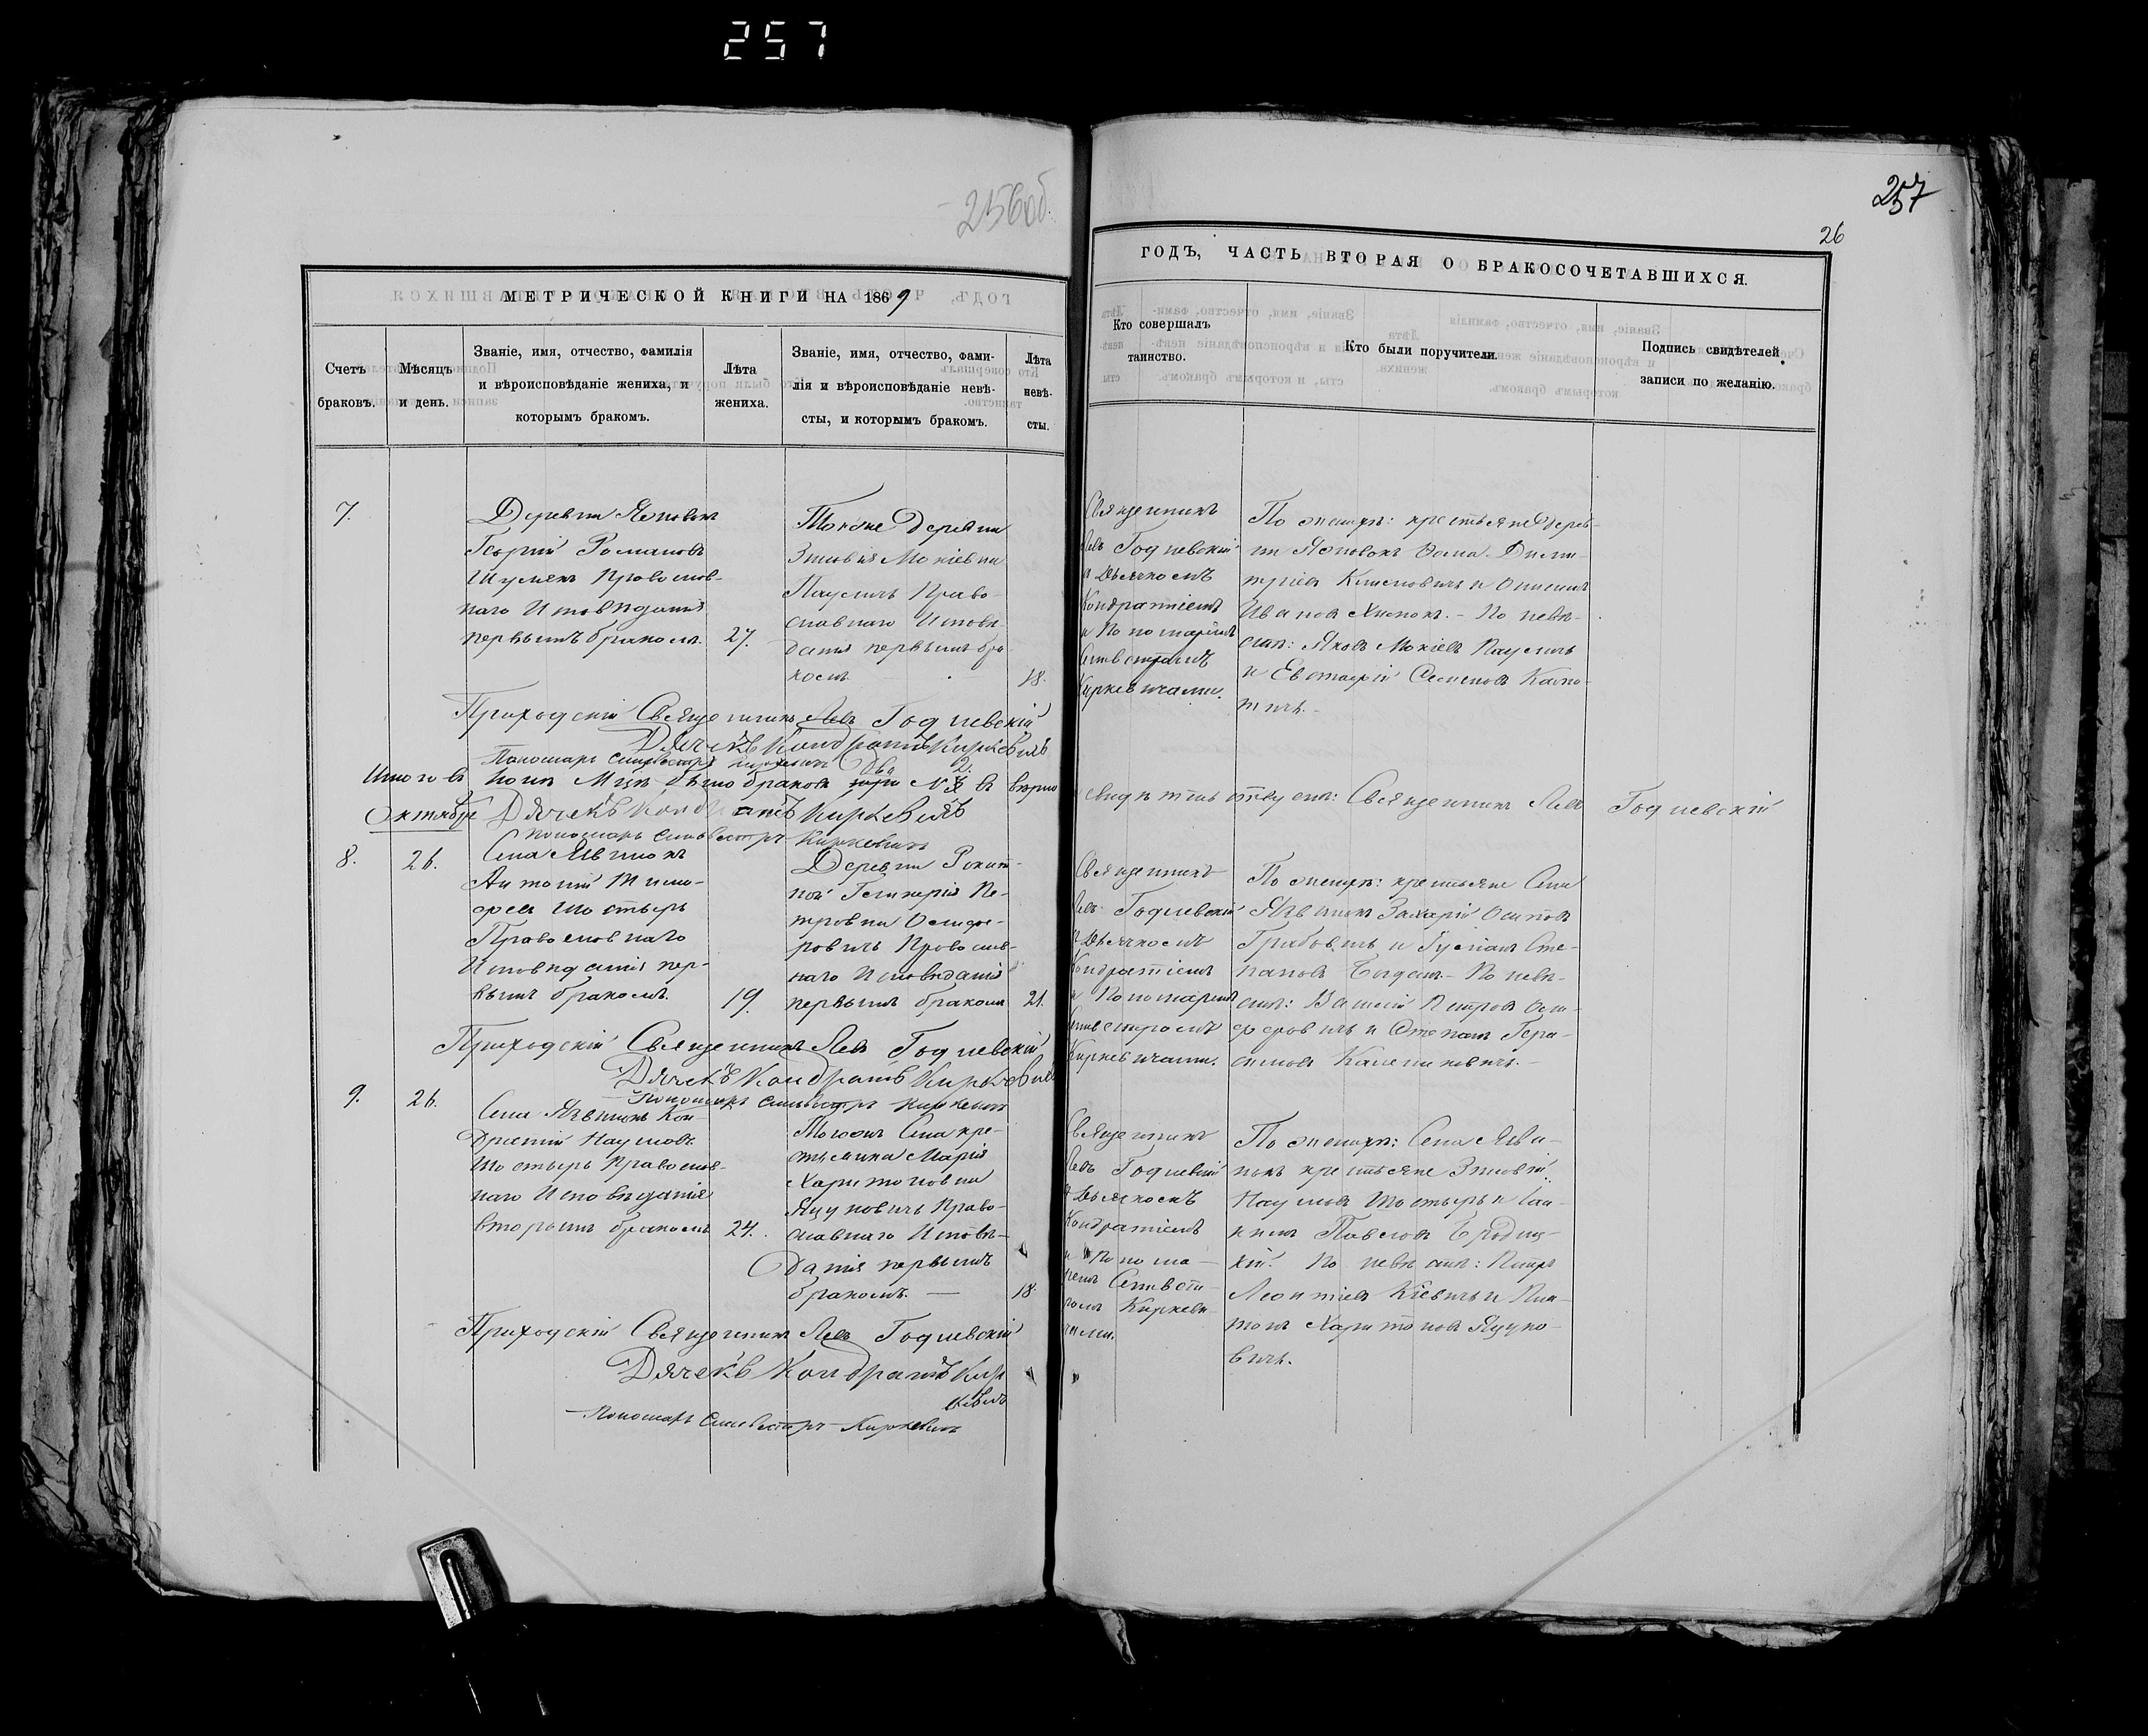 257
256об.
257
26
МЕТРИЧЕСКОЙ КНИГИ НА 1869
ГОДЪ, ЧАСТЬ ВТОРАЯ О БРАКОСОЧЕТАВШИХСЯ.
Счетъ
браковъ.
Мѣсяцъ
и день.
Званіе, имя, отчество, фамилія
и вѣроисповѣданіе жениха, и
которымъ бракомъ.
Лѣта
жениха.
Званіе, имя, отчество, фами-
лія и вѣроисповѣданіе невѣ-
сты, и которымъ бракомъ.
Лѣта
невѣ-
сты.
Кто совершалъ
таинство.
Кто были поручители.
Подпись свидѣтелей
записи по желанію.
7.
Деревни
Георгій Романовъ
Шумякъ Православ-
наго Исповѣданія
первымъ бракомъ.
27.
Тойже деревни
Зиновія Мокіевна
Право-
славнаго Исповѣ-
данія первымъ бра-
комъ
18.
Священникъ
Левъ Годлевскій
и Дьячкомъ
Кондратіемъ
и Пономаремъ
Сильвестромъ
Киркевичами.
По женихѣ: крестьяне дерев-
ни
Иванов По невѣ-
стѣ: Яковъ Мокіевъ
и Евстафій Семеновъ
Приходскій Священникъ Левъ Годлевскій
Дячекъ Кондратъ Киркевичъ
Пономарь Сильвестръ Киркевичъ
Итого въ было браковъ два 2. вѣрно
свидѣтельствуемъ: Священникъ Левъ Годлевскій
Октябрь Дячекъ Киркевичъ
Пономарь Сильвестръ Киркевичъ
8.
26.
Села
Антоній Тимо-
феевъ Шостыръ
Православнаго
Исповѣданія пер-
вымъ бракомъ.
19.
Деревни Рокит-
ной Гликерія Пе-
тровна
Православ-
наго Исповѣданія
первымъ бракомъ
21.
Священникъ
Левъ Годлевскій
и Дьячкомъ
Кондратіемъ
и Пономаремъ
Сильвестромъ
Киркевичами.
По женихѣ: крестьяне Села
Захарій Осиповъ
Сте-
пановъ По невѣ-
стѣ: Петровъ
и Степанъ Гера-
симовъ
Приходскій Священникъ Левъ Годлевскій
Дячекъ Кондратъ Киркевичъ
Пономарь Сильвестръ Киркевичъ
9.
26.
Села Кон-
дратій Наумовъ
Шостыръ Православ-
наго Исповѣданія
вторымъ бракомъ
24.
Тогожъ Села кре-
стьянка Марія
Харитоновна
Яцуковичъ Право-
славнаго Исповѣ-
данія первымъ
бракомъ. —
18.
Священникъ
Левъ Годлевскій
и Дьячкомъ
Кондратіемъ
и Понома-
ремъ Сильвест-
ромъ Киркеви-
чами.
По женихѣ: Села
крестьяне Зиновій
Наумовъ Шостыръ и
Павловъ
По невѣстѣ: Петръ
Леонтіевъ
Харитоновъ Яцуко-
вичъ.
Приходскій Священникъ Левъ Годлевскій
Дячекъ Кондратъ Кир
кевичъ
Пономарь Сильвестръ Киркевичъ